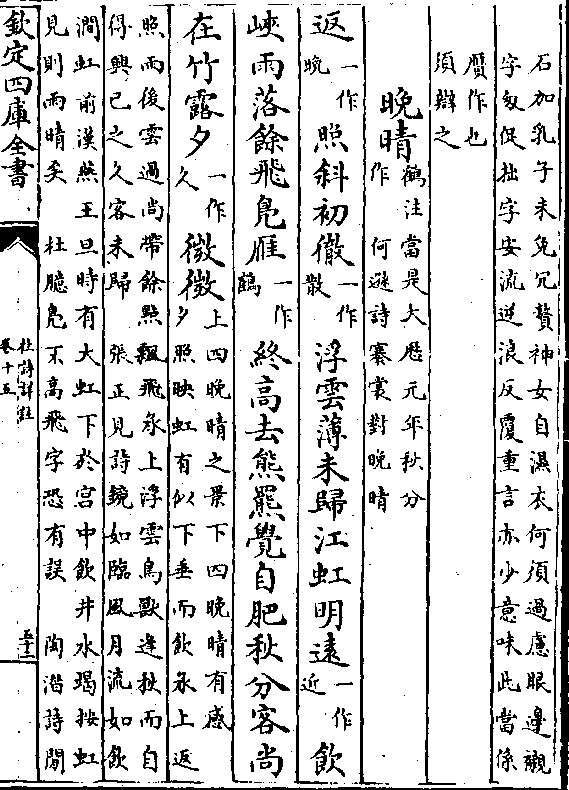 石加乳子未免冗贅神女自濕衣何須過慮眼邊襯
字匆促拙字安流逆浪反覆重言亦少意味此當係
贋作也
須辯之
晚晴
鶴注當是大厯元年秋分
作　何遜詩褰裳對晚晴
返一作晚照斜初徹一作散浮雲薄未歸江虹明遠一作近飲
峽雨落餘飛鳧雁一作鶴終高去熊羆覺自肥秋分客尚
在竹露夕一作久微微
上四晚晴之景下四晚晴有感
夕照映虹有似下垂而飲承上返
照雨後雲過尚帶餘點飄飛承上浮雲鳥獸逢秋而自
得興已之久客未歸　張正見詩鏡如臨風月流如飲
澗虹　前漢燕王旦時有大虹下於宫中飲井水竭按虹
見則雨晴矣　杜臆鳧不高飛字恐有誤　陶潛詩閒
欽定四庫全書
杜詩詳註
卷十五
五十二